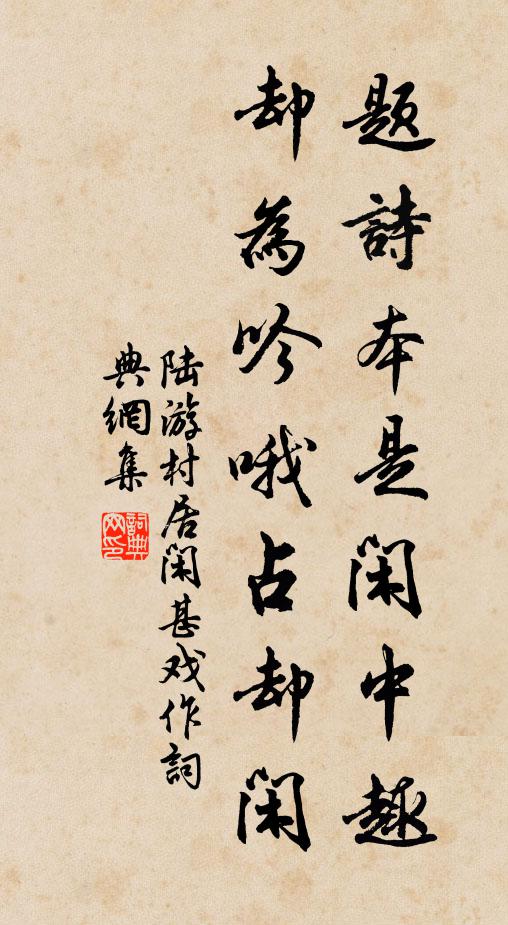 题詩本是闲中趣
却為吟哦占却闲
陆游村居闲甚戏作詞
典網集
詞典網印